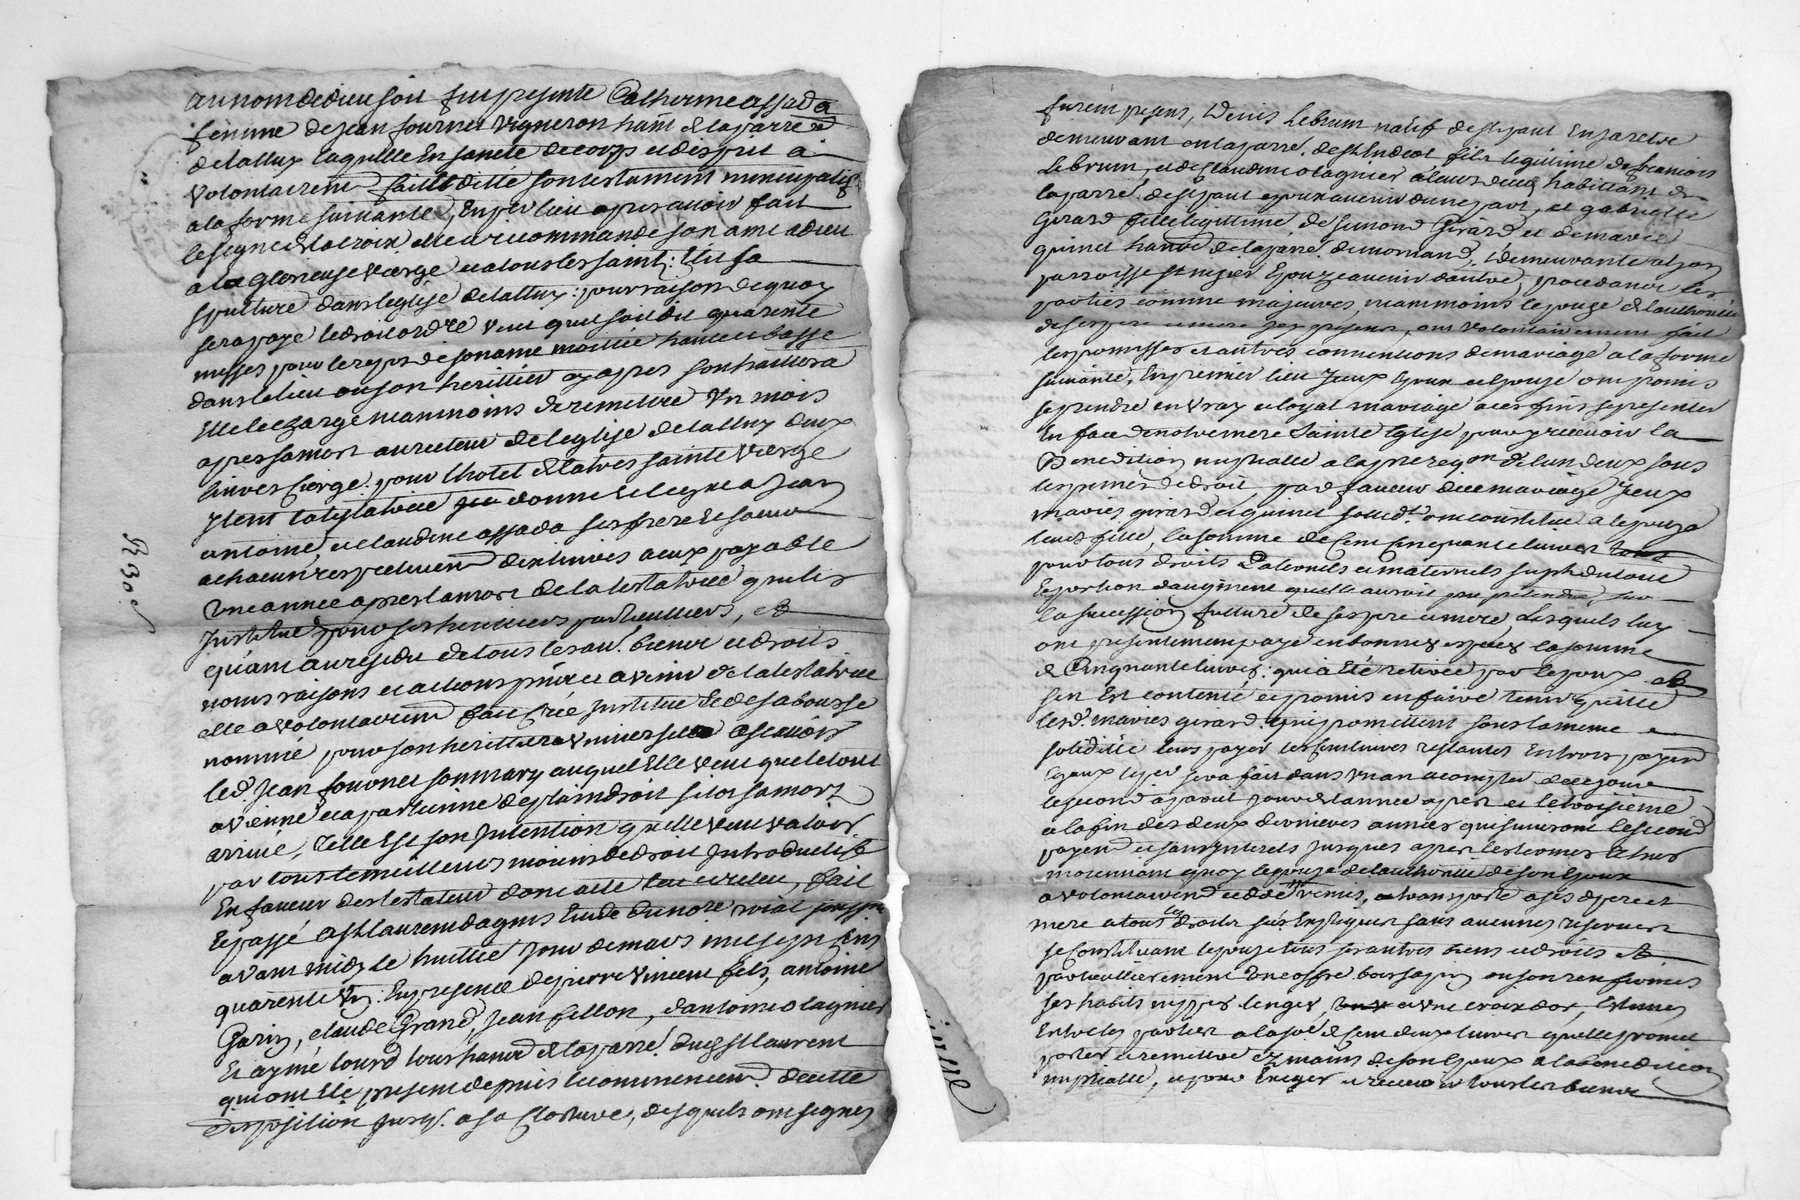 au nom de dieu soit fut presente Catherine assada
femme de Jean fournet vigneron hant de la parre
de tallux laquelle en sancté de corps et desprit a
volontairemt fait et dicte son testament nuncupatif
a la forme suivante, en per lieu apres avoir fait
le signe de la croix elle a recommandé son ame a dieu
a la glorieuse vierge et a tous les saints; Elit sa
sepulture dans leglise de tallux; pour raison de quoy
sera payé le droit ordre veut que soit dit quarente
messes pour le repos de son ame moitié haute et basse
dans le lieu ou son heritier cy apres souhaittera
Elle charge neanmoins de remettre un mois
apres sa mort au recteur de leglise de tallux deux
livres cierge pour lhotel de la tres sainte vierge
Item la testatrice donne et legue a Jean
antoine, et claudine assada ses frere et soeur
a chacun respectivemt dix livres a eux payable
une annee apres la mort de la testatrice quelle
Institue pour ses heritiers particulliers, et
quant au residu de tous les aut. biens et droits
noms raisons et actions pnts et a venir de la testatrice
elle a volontairemt fait créé Institué et de sa bousse
nommé pour son heritier universel a scavoir
led. Jean fournet son mary auquel Elle veut que le tout
avienne et apartienne de plain droit sitot sa mort
arrivé, telle est son Intention quelle veut valoir
par tous les meilleurs moiens de droit Introduits
En faveur des testateur dont acte, fait
Et passé a St laurent dagnis Etude du nore roial
avant midy le huittie jour de mars mil sept cens
quarente un; En presence de pierre vincent fils, antoine
Garin, claude Grand, Jean fillon, dantoine olagnier
Et aymé lourd tous hant de la parre. dud St laurent
qui ont Eté present depuis le commencemt de cette
disposition jusq. a sa closture, desquels ont signes
furent presens, Denis Lebrum natif de St paul En jarest
demeurant en la parre. de St andeol fils legitime de francois
Lebrum, et de claudine olagnier a leurs deux habittant de
la parre. de St paul epoux avenir dune part, et gabrielle
Girard fille legittime, de simond Girard et de marie
quinet hants de la parre. de mornand, demeurante a lyon
parroisse St nizier Epouze avenir dautre, procedant les
parties comme majeures, neanmoins lepouze de lauthorité
de ses pere et mere icy presens, ont volontairement fait
les promesses et autres conventions de mariage a la forme
suivante, En premier lieu Iceux Epoux et Epouze ont promis
se prendre en vray et loyal mariage a ces fins se presenter
En face de notre mere Sainte Eglise pour y recevoir la
Benediction nuptialle a la pre reqon de lun deux sous
les peines de droit, par faveur dud mariage Iceux
mariés girard et quinet soud. ont constitue a lepouze
leurd fille, la somme de Cent cinquante livres
pour tous droits Paternels et maternels suplement
Et portion daugment quelle auroit peu pretendre sur
la succession future de ses pere et mere desquels luy
ont presentement payé en bonnes espèces la somme
de Cinquante livres; qui a été retirée par lepoux
sen Est contenté et promis en faire tenir quitte
lesd. mariés girard qui promettent sous la meme
solidité leurs payer les Cent livres restantes En trois payemt
Egaux le per sera fait dans un an a compter de ce jour
le second a pareil jour de lannee apres et le troisieme
a la fin des deux dernieres annees qui suivront le second
payemt et sans interets jusques apres les termes Echus
moiennant quoy lepouze de lauthorité de son Epoux
a volontairemt cedé remis, et transporté a ses d pere et
mere a tous les droits sus Expliques sans aucunes reserves
se Constituant lepouze tous ses autres biens et droits et
particullierement Une coffre bois sapin ou son renfermés
ses habits nippes linges, et une croix dor, Estimés
Entre les parties a la some de Cent deux livres quelle promet
porter et remettre Ez mains de son Epoux a la benediction
nuptialle, et pour Exiger et recevoir tous les biens